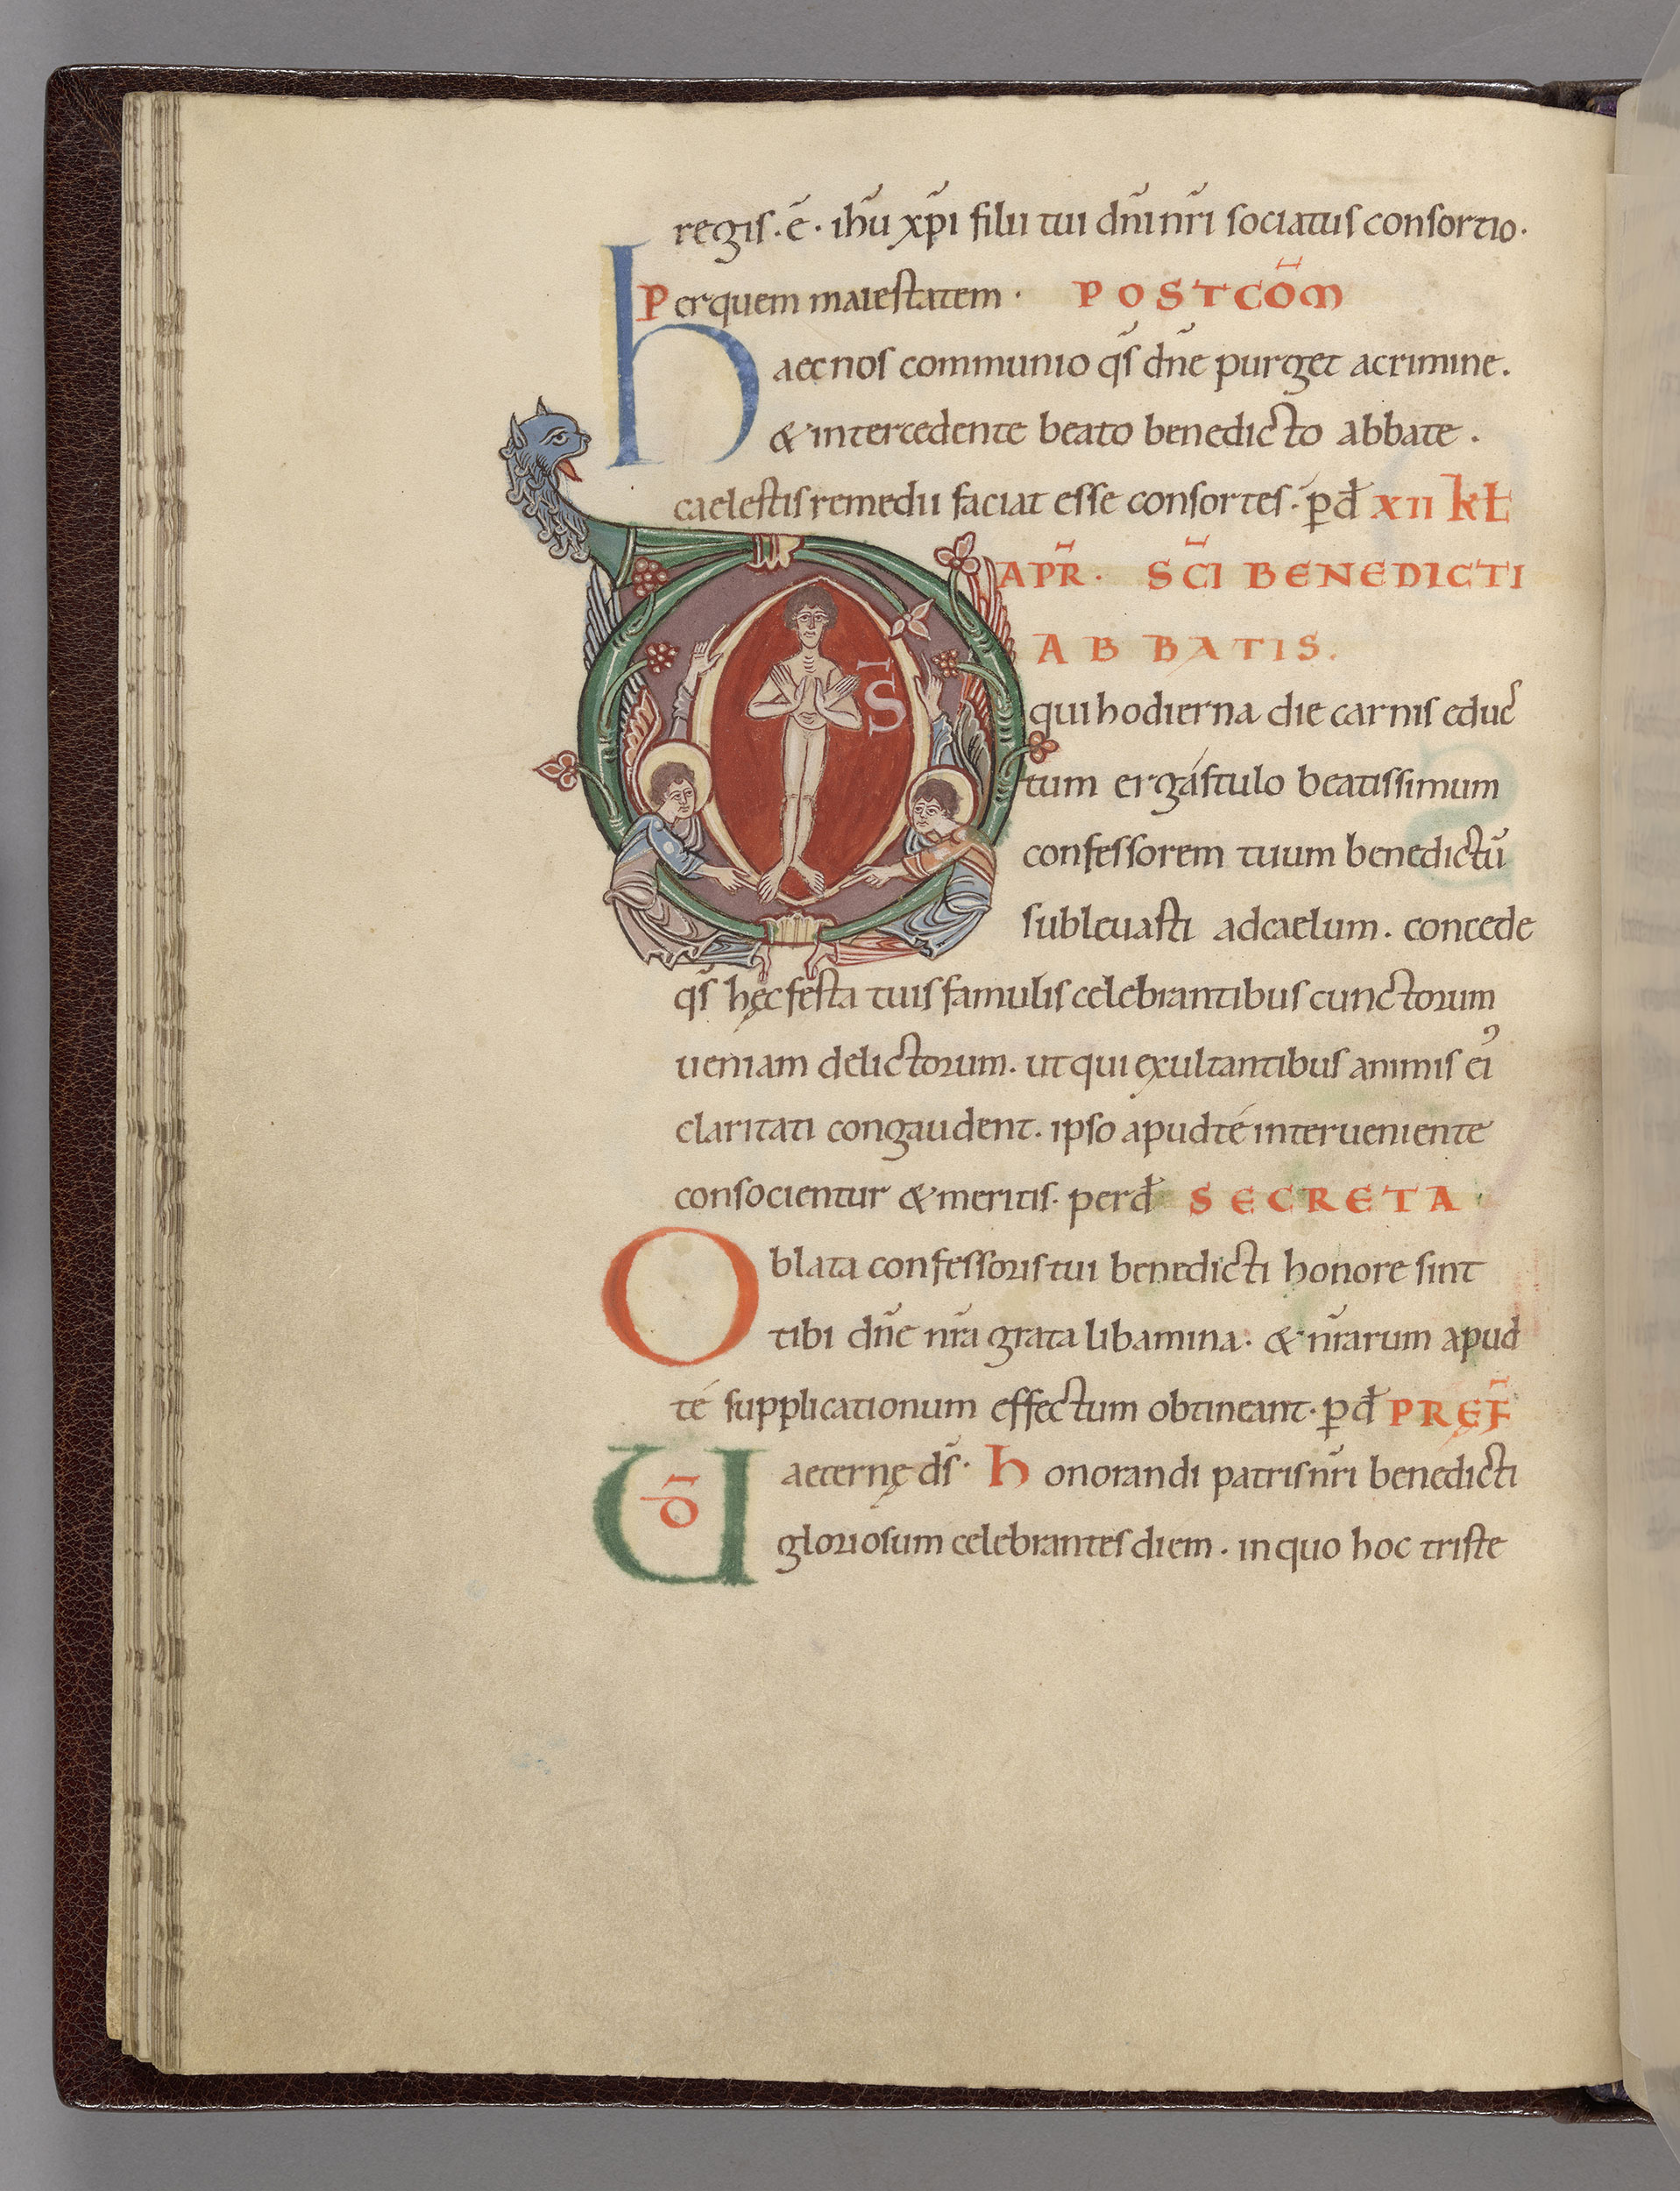 regis · ē · ihū xp̄i filii tui dn̄i nr̄i sociatus consortio ·
Per quem maiestatem · POSTCŌM
Haec nos communio qs̄ dn̄e purget acrimine .
& intercedente beato benedicto abbate .
caelestis remedii faciat esse consortes · p̄ d̄ XII KŁ
APR̄ · SC̄I BENEDICTI
ABBATIS .
D̄S qui hodierna die carnis educ
tum ergástulo beatissimum
confessorem tuum benedictū
subleuasti adcaelum . concede
qs̄ hęc festa tuis famulis celebrantibus cunctorum
ueniam delictorum . ut qui exultantibus animis ei᾽
claritati congaudent . ipso apud té interueniente
consocientur & meritis · per d̄ SECRETA
Oblata confessoris tui benedicti honore sint
tibi dn̄e nr̄a grata libamina · & nr̄arum apud
té supplicationum effectum obtineant · p̄ d̄ PRĘF̄
UD̄ aeternę ds̄ · Honorandi patris nr̄i benedicti
gloriosum celebrantes diem . inquo hoc triste